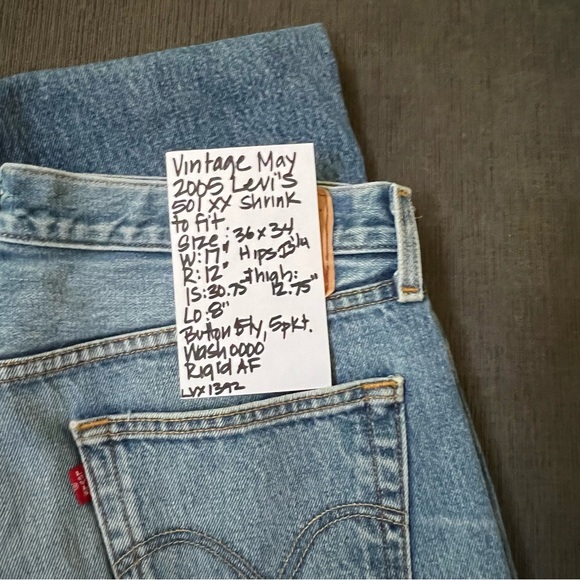 Vintage May
2005 Levi's
501 XX Shrink
to fit.
Size: 36 x 34
W: 17" Hips:
R: 12" Thigh:
IS: 30.75" 12.75"
LO: 8"
Button Fly, 5pkt.
Wash 0000
Rigid AF
LVX1392